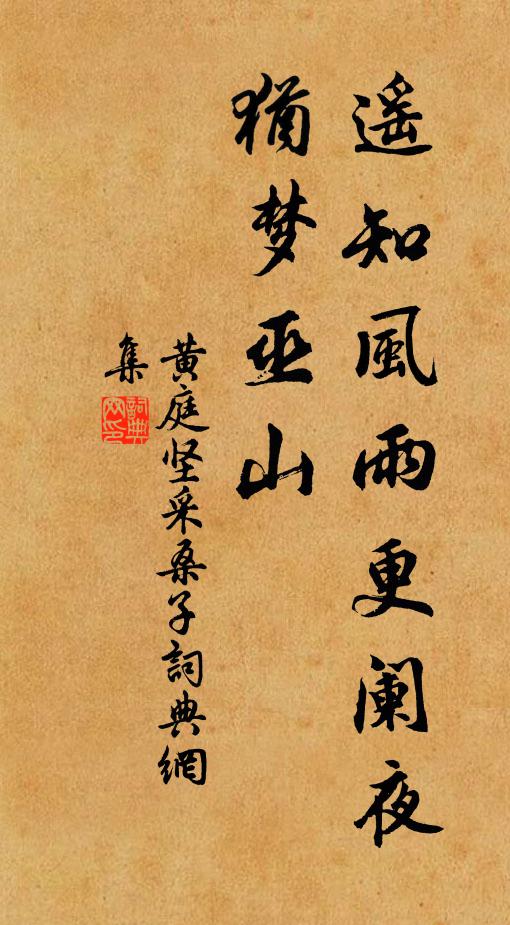 遥知風雨更阑夜
猶梦巫山
黄庭坚采桑子詞典網
集
詞典网印